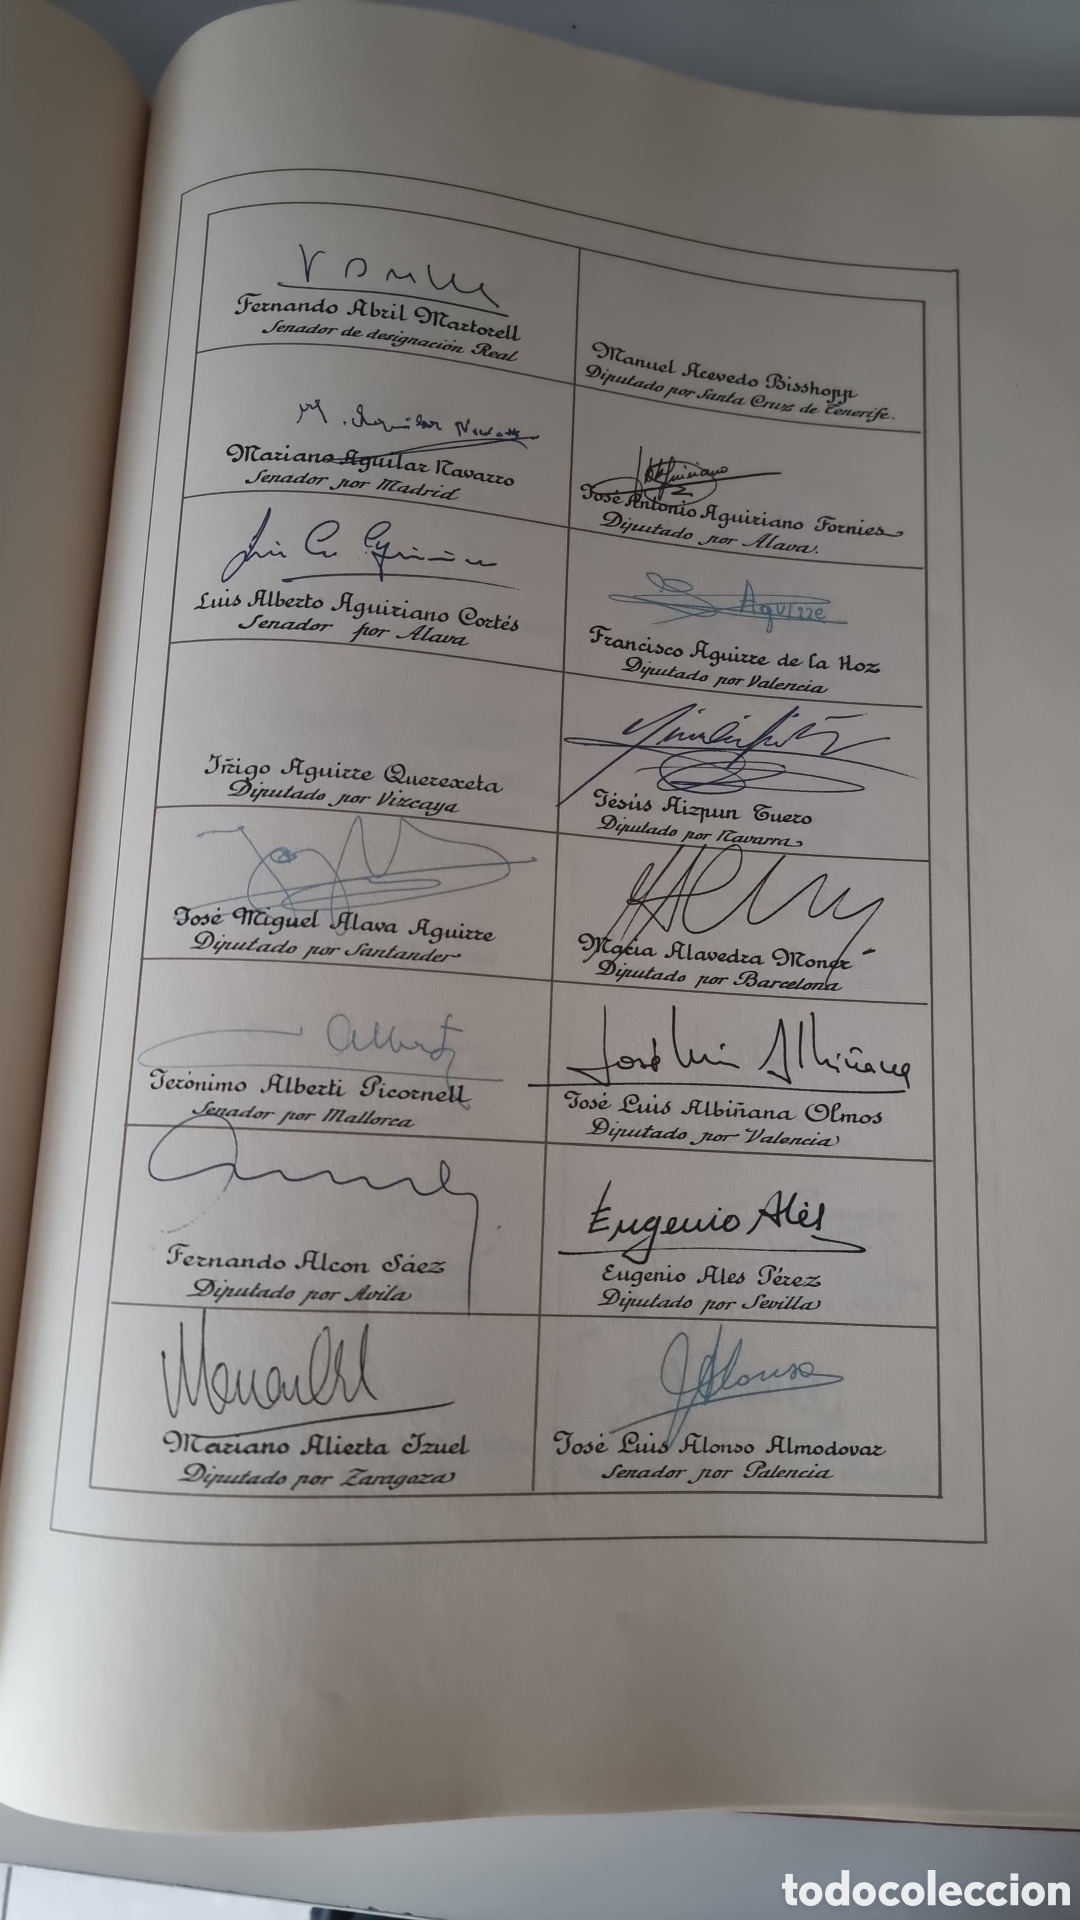 Fernando Abril Martorell
Senador de designación Real
Manuel Acevedo Bisshopp
Diputado por Santa Cruz de Tenerife.
M. Aguilar Navarro
Mariano Aguilar Navarro
Senador por Madrid
José Antonio Aguiriano Fornies
Diputado por Alava.
Luis Alberto Aguiriano Cortés
Senador por Alava
Aguirre
Francisco Aguirre de la Hoz
Diputado por Valencia
Iñigo Aguirre Querexeta
Diputado por Vizcaya
Jésús Aizpun Tuero
Diputado por Navarra
José Miguel Alava Aguirre
Diputado por Santander
Macia Alavedra Moner
Diputado por Barcelona
Alberti
Jerónimo Alberti Picornell
Senador por Mallorca
José Luis Albiñana
José Luis Albiñana Olmos
Diputado por Valencia
Fernando Alcon Sáez
Diputado por Avila
Eugenio Alés
Eugenio Ales Pérez
Diputado por Sevilla
Mariano Alierta Izuel
Diputado por Zaragoza
J Alonso
José Luis Alonso Almodovar
Senador por Palencia
todocoleccion